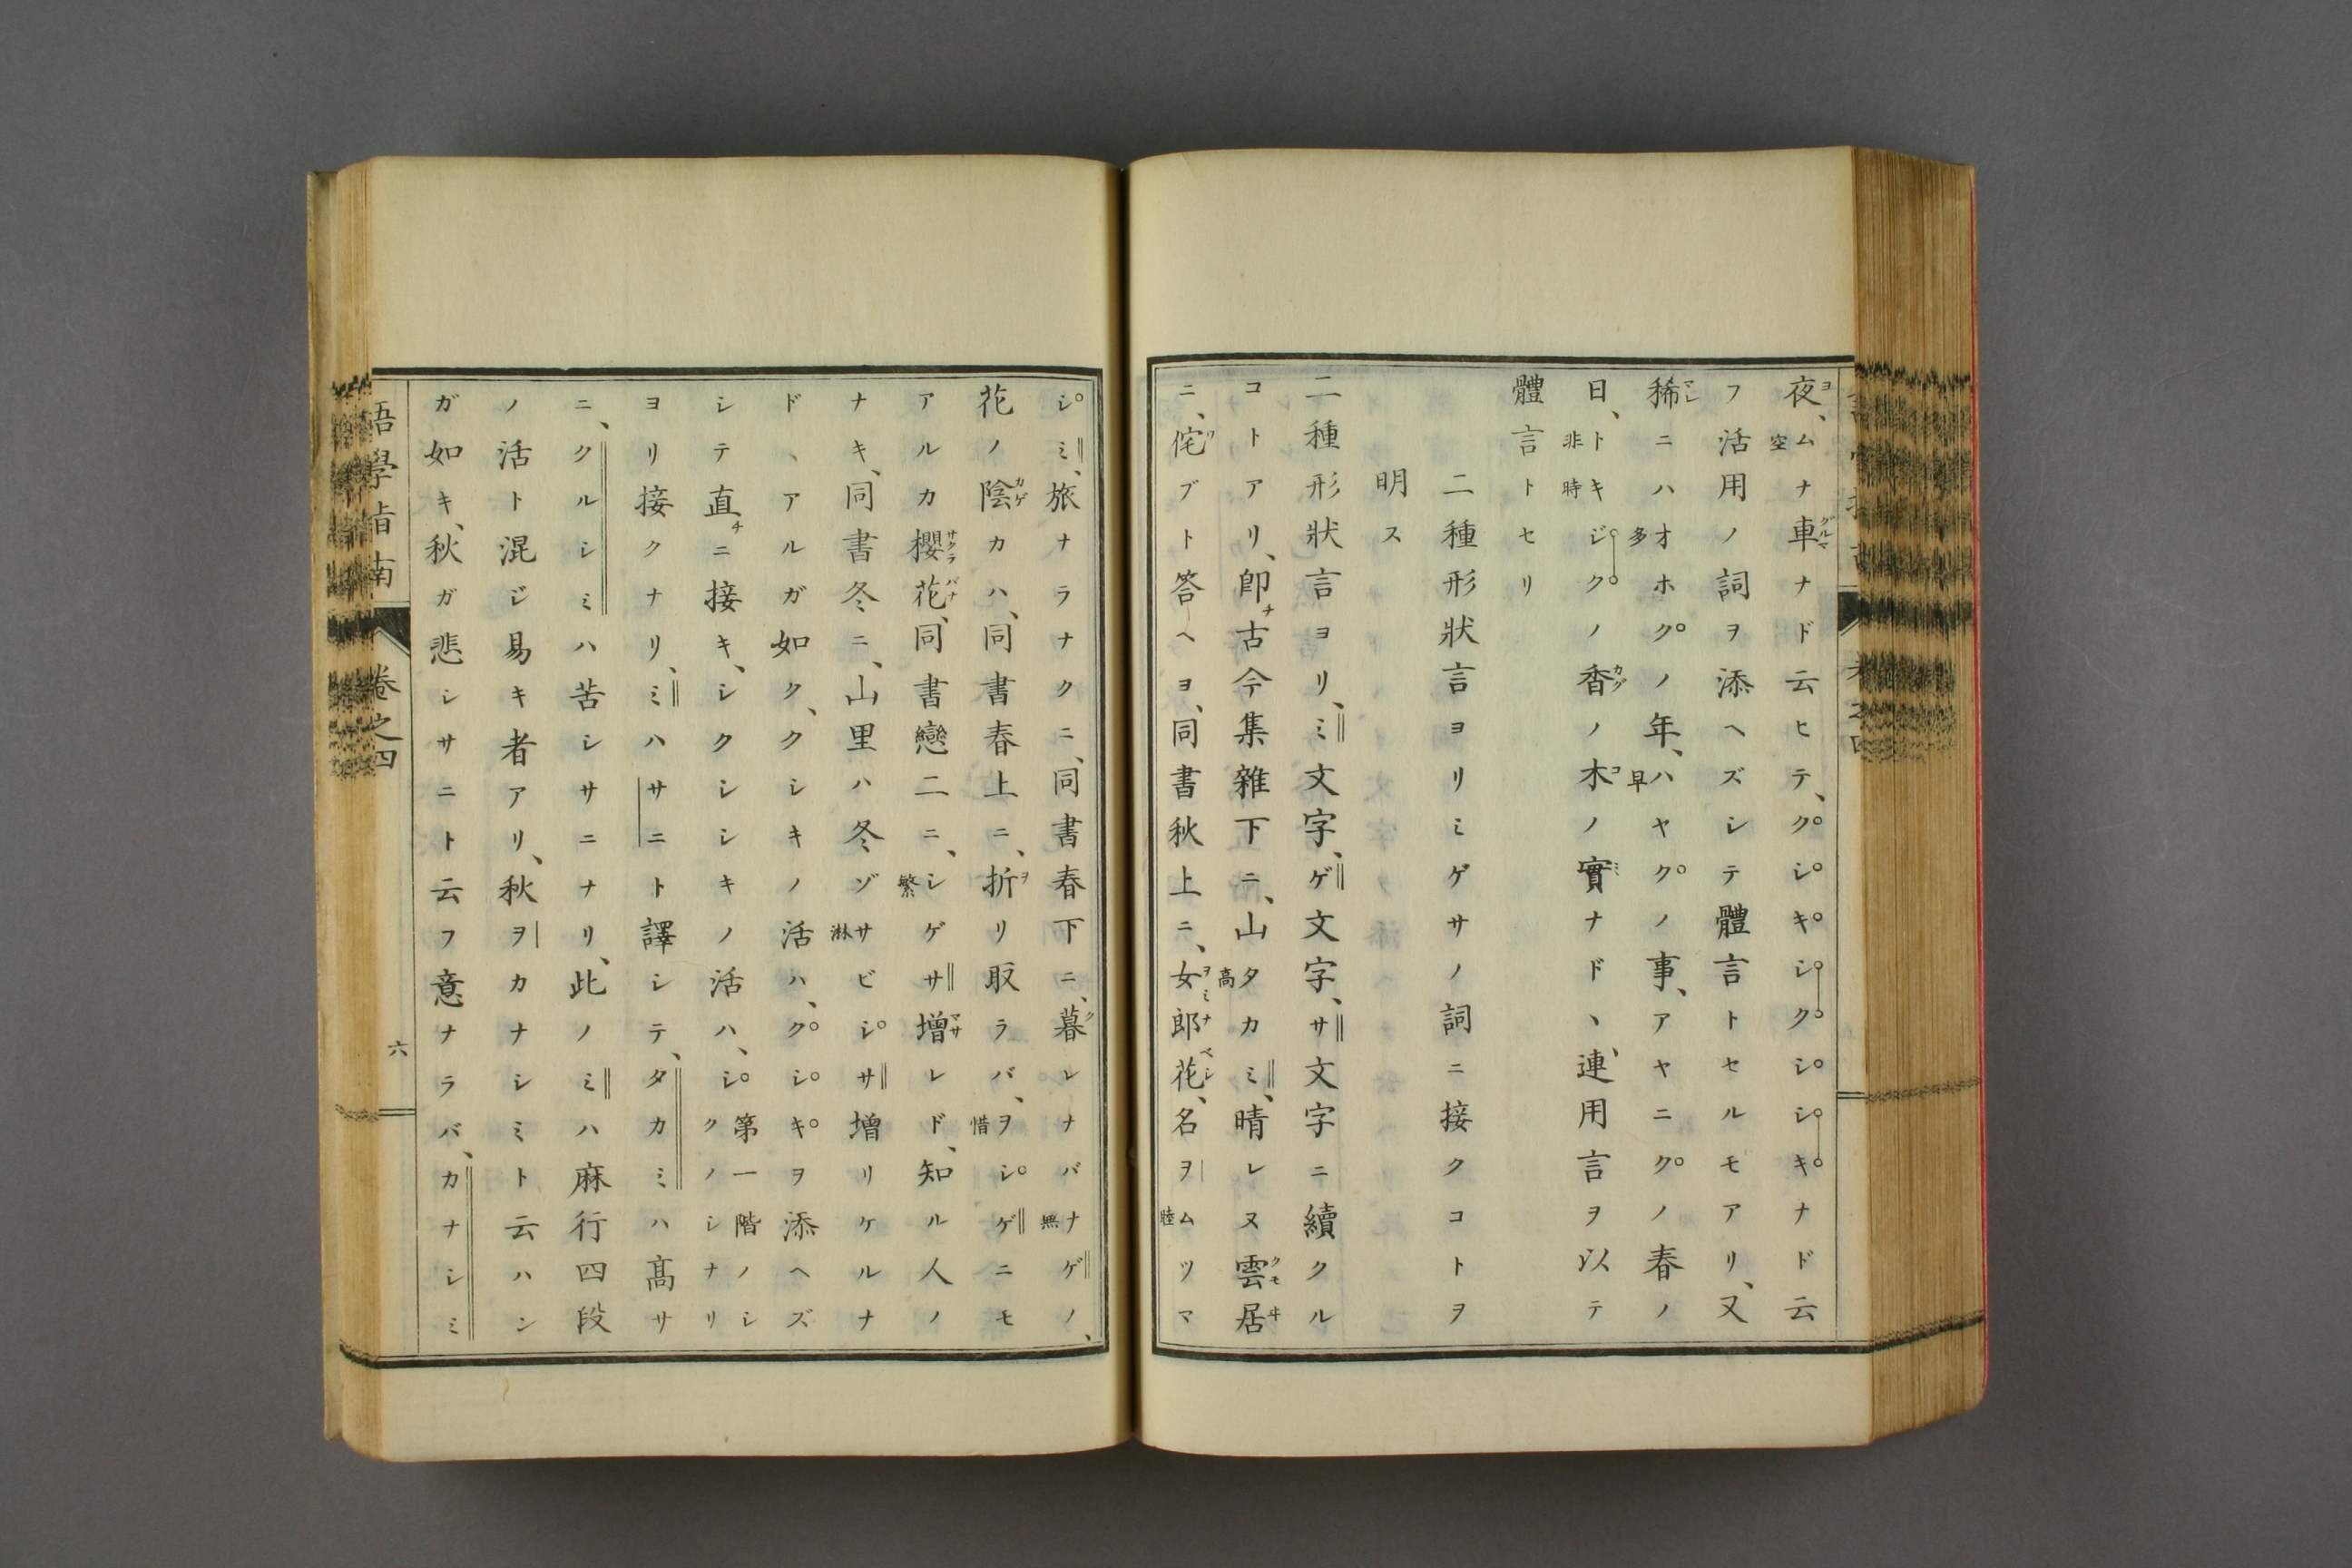 夜、ムナ車ナド云ヒテ、クシキシクシシキナド云
フ活用ノ詞ヲ添ヘズシテ體言トセルモアリ、又
稀ニハオホクノ年、ハヤクノ事、アヤニクノ春ノ
日、トキジクノ香ノ木ノ實ナドヽ、連用言ヲ以テ
體言トセリ
二種形狀言ヨリミゲサノ詞ニ接クコトヲ
明ス
二種形狀言ヨリ、ミ文字、ゲ文字、サ文字ニ續クル
コトアリ、卽チ古今集雜下ニ、山タカミ、晴レヌ雲居
ニ、侘ブト答ヘヨ、同書秋上ニ、女郎花、名ヲムツマ
シミ、旅ナラナクニ、同書春下ニ、暮レナバナゲノ、
花ノ陰カハ、同書春上ニ、折リ取ラバ、ヲシゲニモ
アルカ櫻花、同書戀二ニ、シゲサ增レド、知ル人ノ
ナキ、同書冬ニ、山里ハ冬ゾサビシサ增リケルナ
ドヽアルガ如ク、クシキノ活ハ、クシキヲ添ヘズ
シテ直チニ接キ、シクシシキノ活ハ、シ第一階ノシクノシナリ
ヨリ接クナリ、ミハサニト譯シテ、タカミハ高サ
ニ、クルシミハ苦シサニナリ、此ノミハ麻行四段
ノ活ト混ジ易キ者アリ、秋ヲカナシミト云ハン
ガ如キ、秋ガ悲シサニト云フ意ナラバ、カナシミ
語學指南
卷之四
六